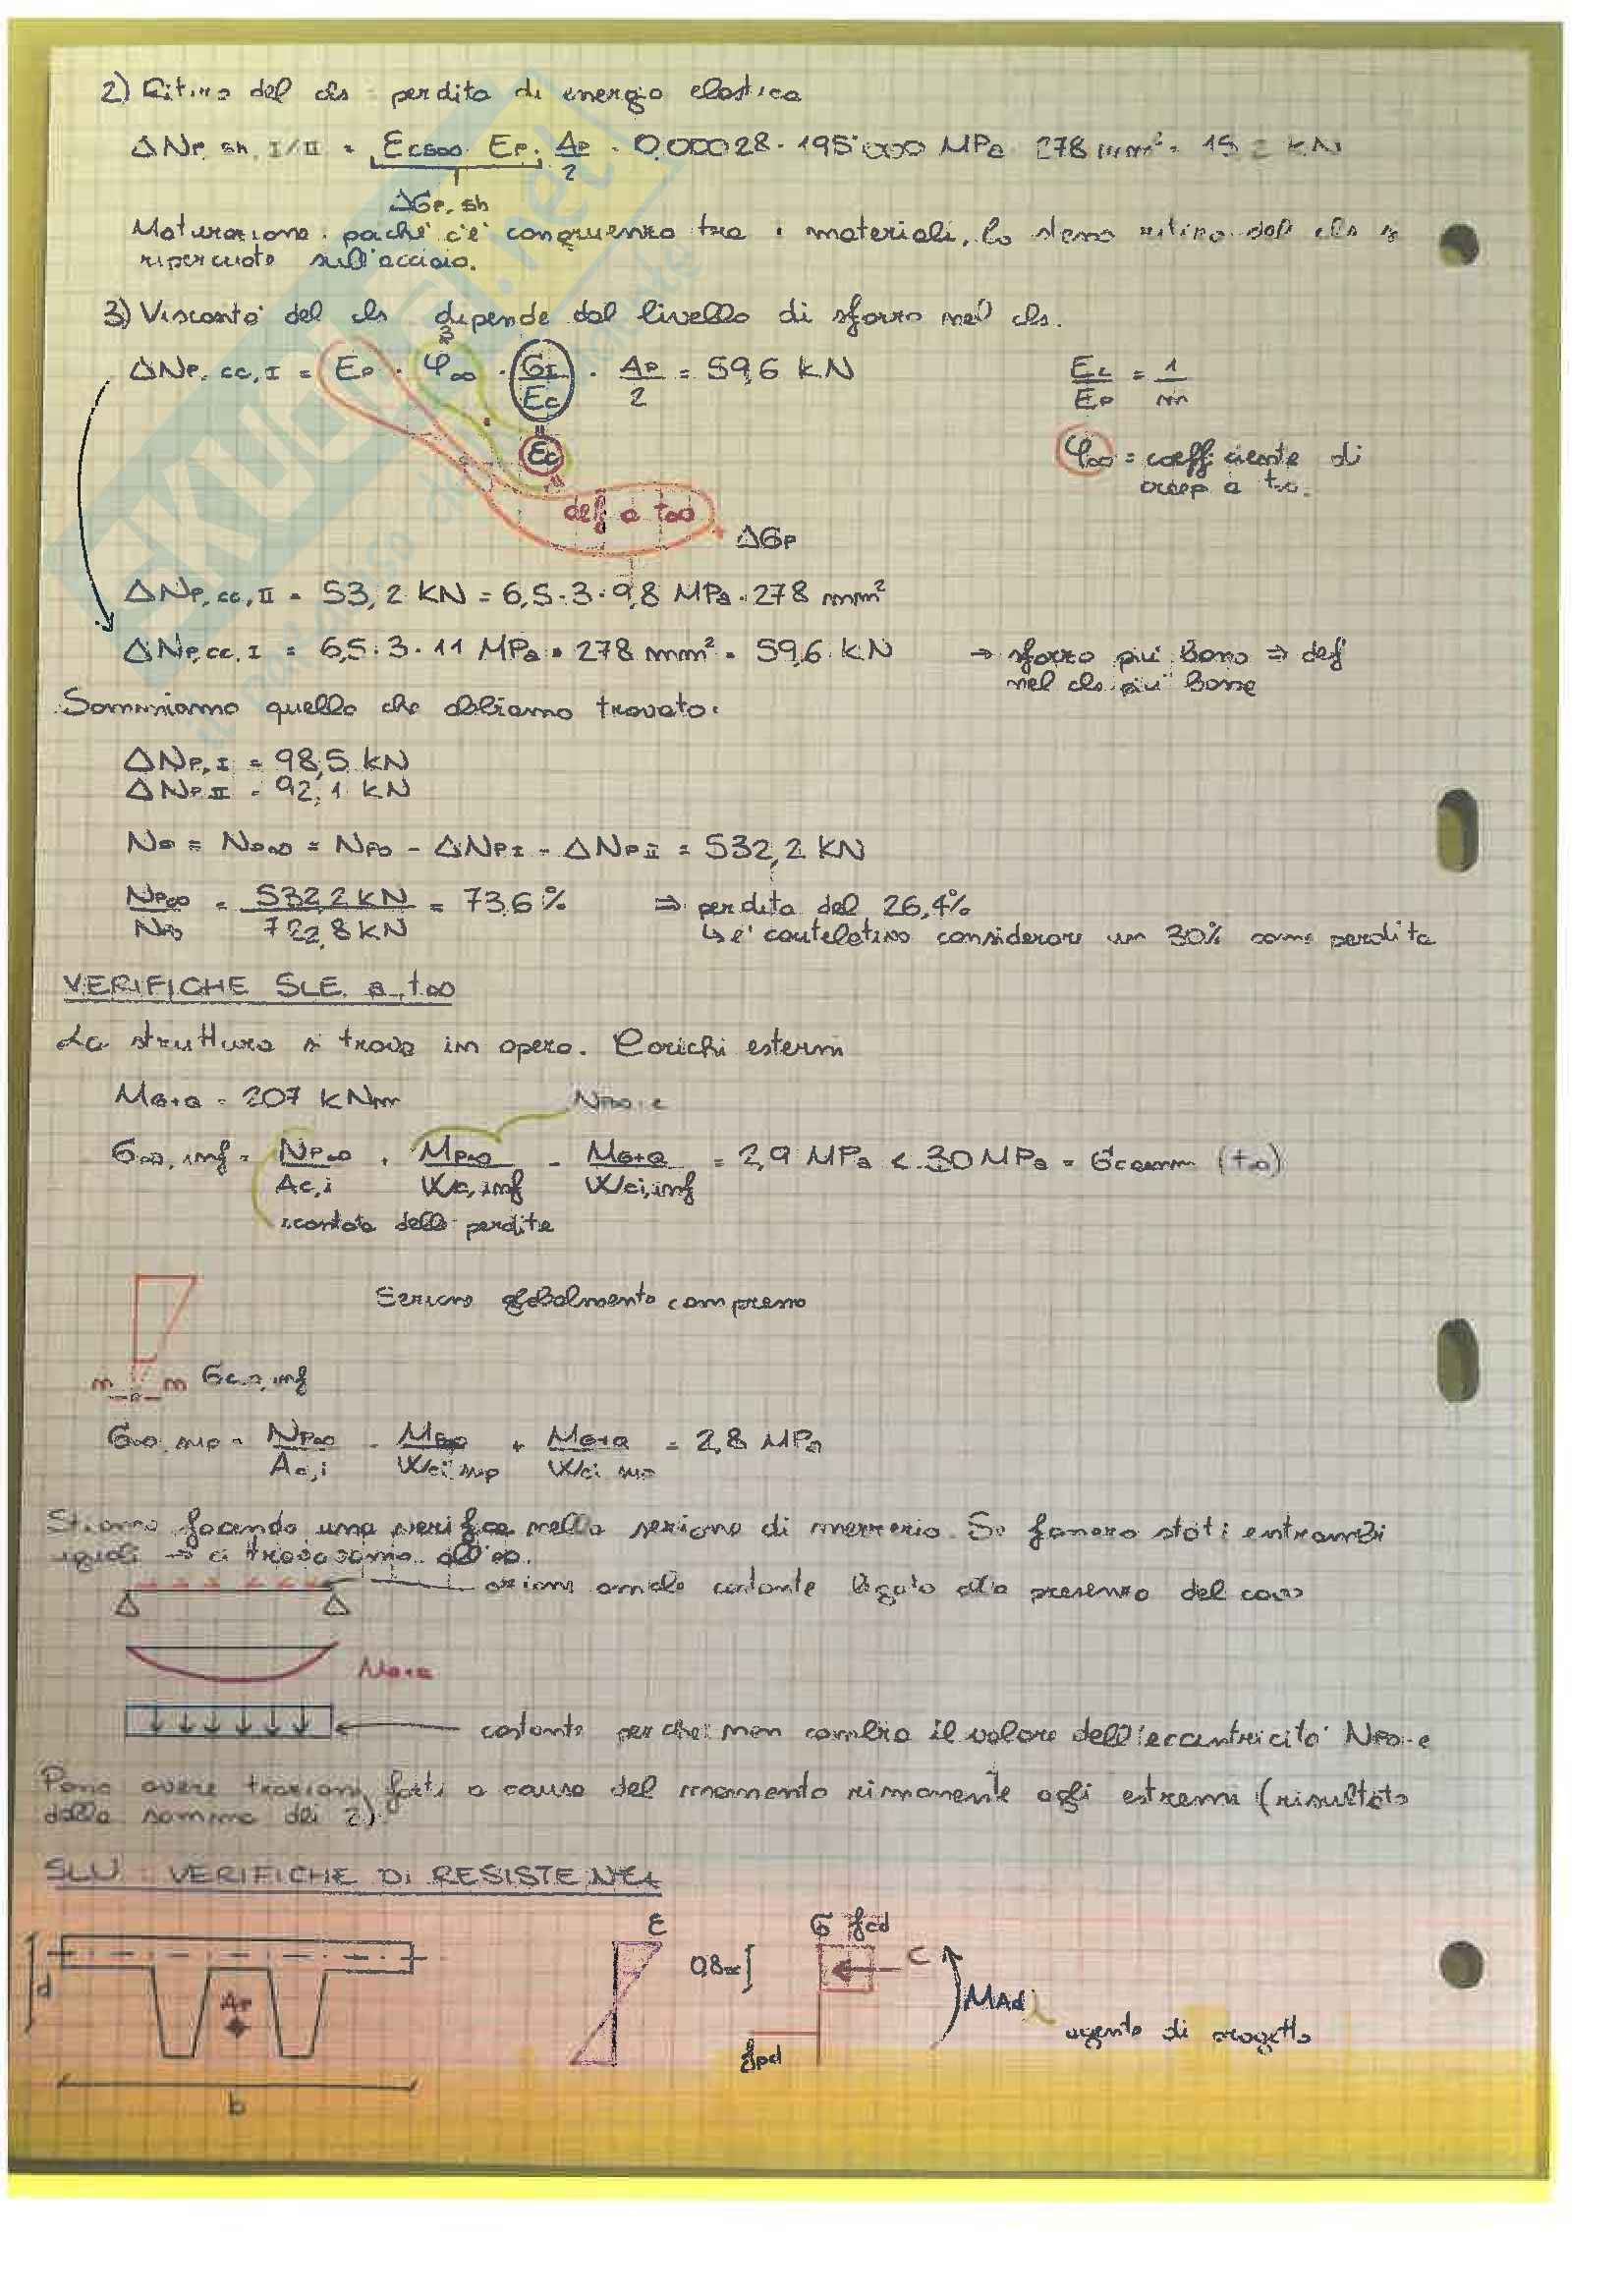 2) Ritiro del cls perdita di energia elastica
ΔNp, sh, I/II = Ecs∞ · Ep · Ap/2 = 0,00028 · 195'000 MPa · 278 mm² = 15,2 kN
ΔGp, sh
Maturazione: poiché c'è congruenza tra i materiali, lo stesso ritiro del cls si
ripercuote sull'acciaio.
3) Viscosità del cls dipende dal livello di sforzo nel cls.
3
ΔNp, cc, I = Ep · φ∞ · GI/Ec · Ap/2 = 59,6 kN Ec/Ep = 1/m
Ec φ∞ = coefficiente di
creep a t∞.
def a t∞
ΔGp
ΔNp, cc, II = 53,2 kN = 6,5 · 3 · 9,8 MPa · 278 mm²
ΔNp, cc, I = 6,5 · 3 · 11 MPa · 278 mm² = 59,6 kN → sforzo più basso ⇒ def
nel cls più basse
Sommiamo quello che abbiamo trovato:
ΔNp, I = 98,5 kN
ΔNp II = 92,1 kN
N∞ = Np∞ = Np0 - ΔNp I - ΔNp II = 532,2 kN
Np∞/Np0 = 532,2 kN/722,8 kN = 73,6 % ⇒ perdita del 26,4%
↳ è cautelativo considerare un 30% come perdita
VERIFICHE SLE a t∞
La struttura si trova in opera. Carichi esterni
MG+Q = 207 kNm Np∞ · e
G∞, inf = Np∞/Ac,i + Mp∞/Wci, inf - MG+Q/Wci, inf = 2,9 MPa < 30 MPa = Gcamm (t∞)
scontata delle perdite
Sezione globalmente compressa
m m Gc∞, inf
G∞, sup = Np∞/Ac,i - Mp∞/Wci, sup + MG+Q/Wci, sup = 2,8 MPa
Stiamo facendo una verifica nella sezione di mezzeria. Se fossero stati entrambi
uguali → ci trovavamo all'∞.
azione assiale costante legata alla presenza del cavo
MG+Q
costante perché non cambia il valore dell'eccentricità Np0 · e
Posso avere trazioni forti a causa del momento rimanente agli estremi (risultato
dalla somma dei 2).
SLU: VERIFICHE DI RESISTENZA
d Ap b
ε 0,8x G fcd C fpd MAd
agente di progetto